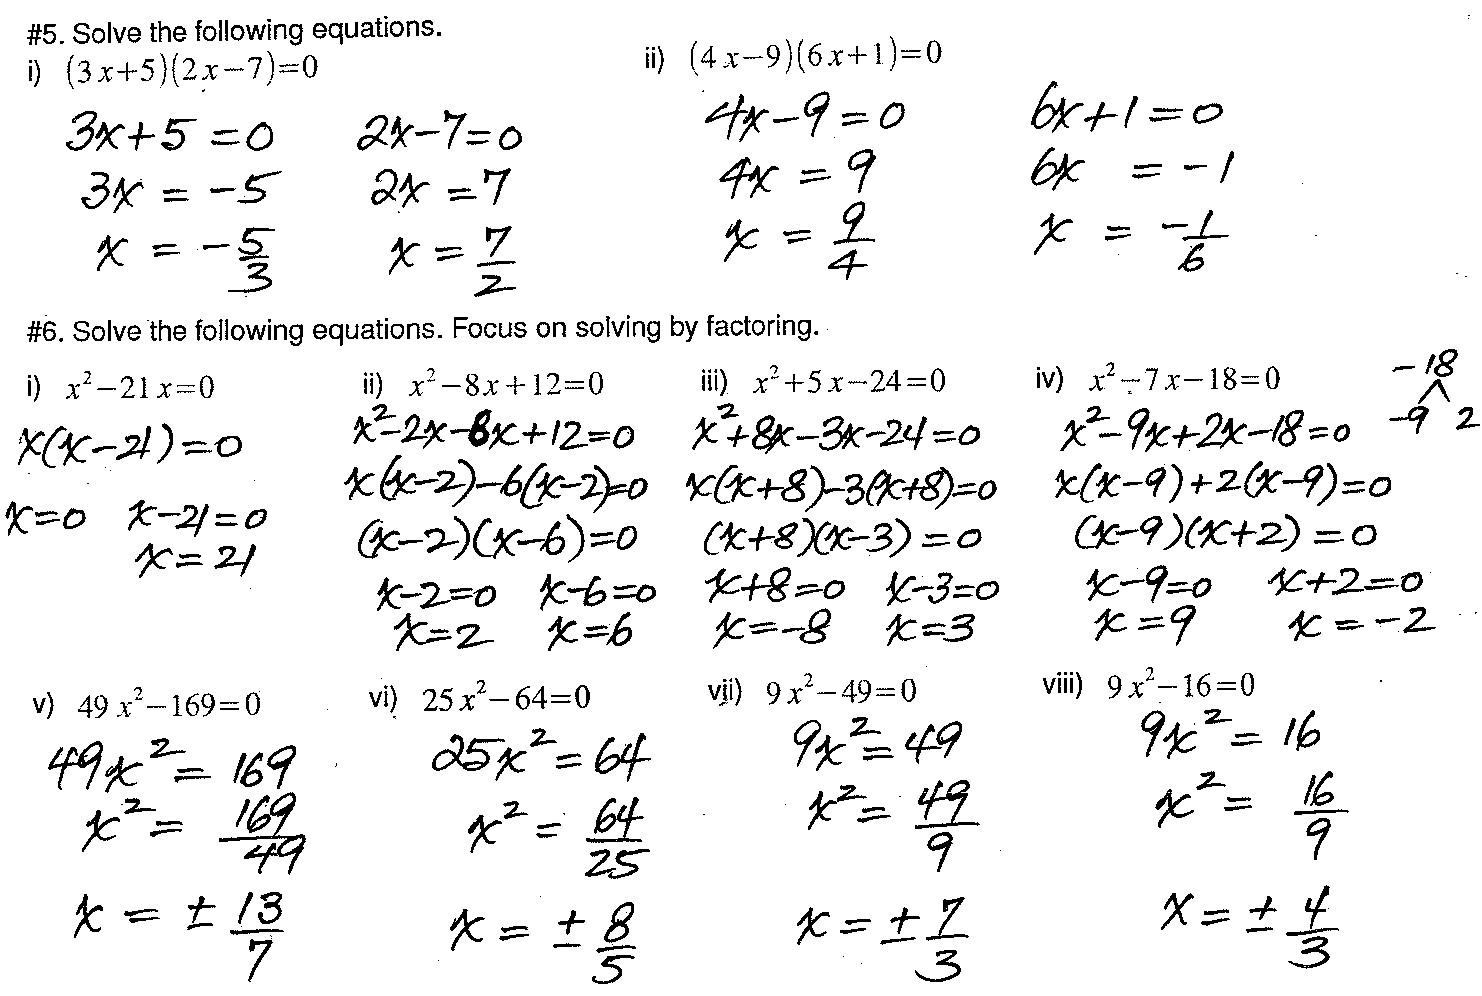 #5. Solve the following equations.
i) (3x+5)(2x−7)=0
3x+5 =0   2x−7=0
3x = −5   2x =7
x = −5/3   x = 7/2
ii) (4x−9)(6x+1)=0
4x−9=0   6x+1=0
4x = 9   6x = −1
x = 9/4   x = −1/6
#6. Solve the following equations. Focus on solving by factoring.
i) x²−21x=0
x(x−21)=0
x=0   x−21=0
x=21
ii) x²−8x+12=0
x²−2x−6x+12=0
x(x−2)−6(x−2)=0
(x−2)(x−6)=0
x−2=0   x−6=0
x=2   x=6
iii) x²+5x−24=0
x²+8x−3x−24=0
x(x+8)−3(x+8)=0
(x+8)(x−3)=0
x+8=0   x−3=0
x=−8   x=3
iv) x²−7x−18=0
−18
−9 2
x²−9x+2x−18=0
x(x−9)+2(x−9)=0
(x−9)(x+2)=0
x−9=0   x+2=0
x=9   x=−2
v) 49x²−169=0
49x²=169
x²= 169/49
x = ± 13/7
vi) 25x²−64=0
25x²=64
x² = 64/25
x = ± 8/5
vii) 9x²−49=0
9x²=49
x²= 49/9
x=± 7/3
viii) 9x²−16=0
9x²= 16
x²= 16/9
x=± 4/3